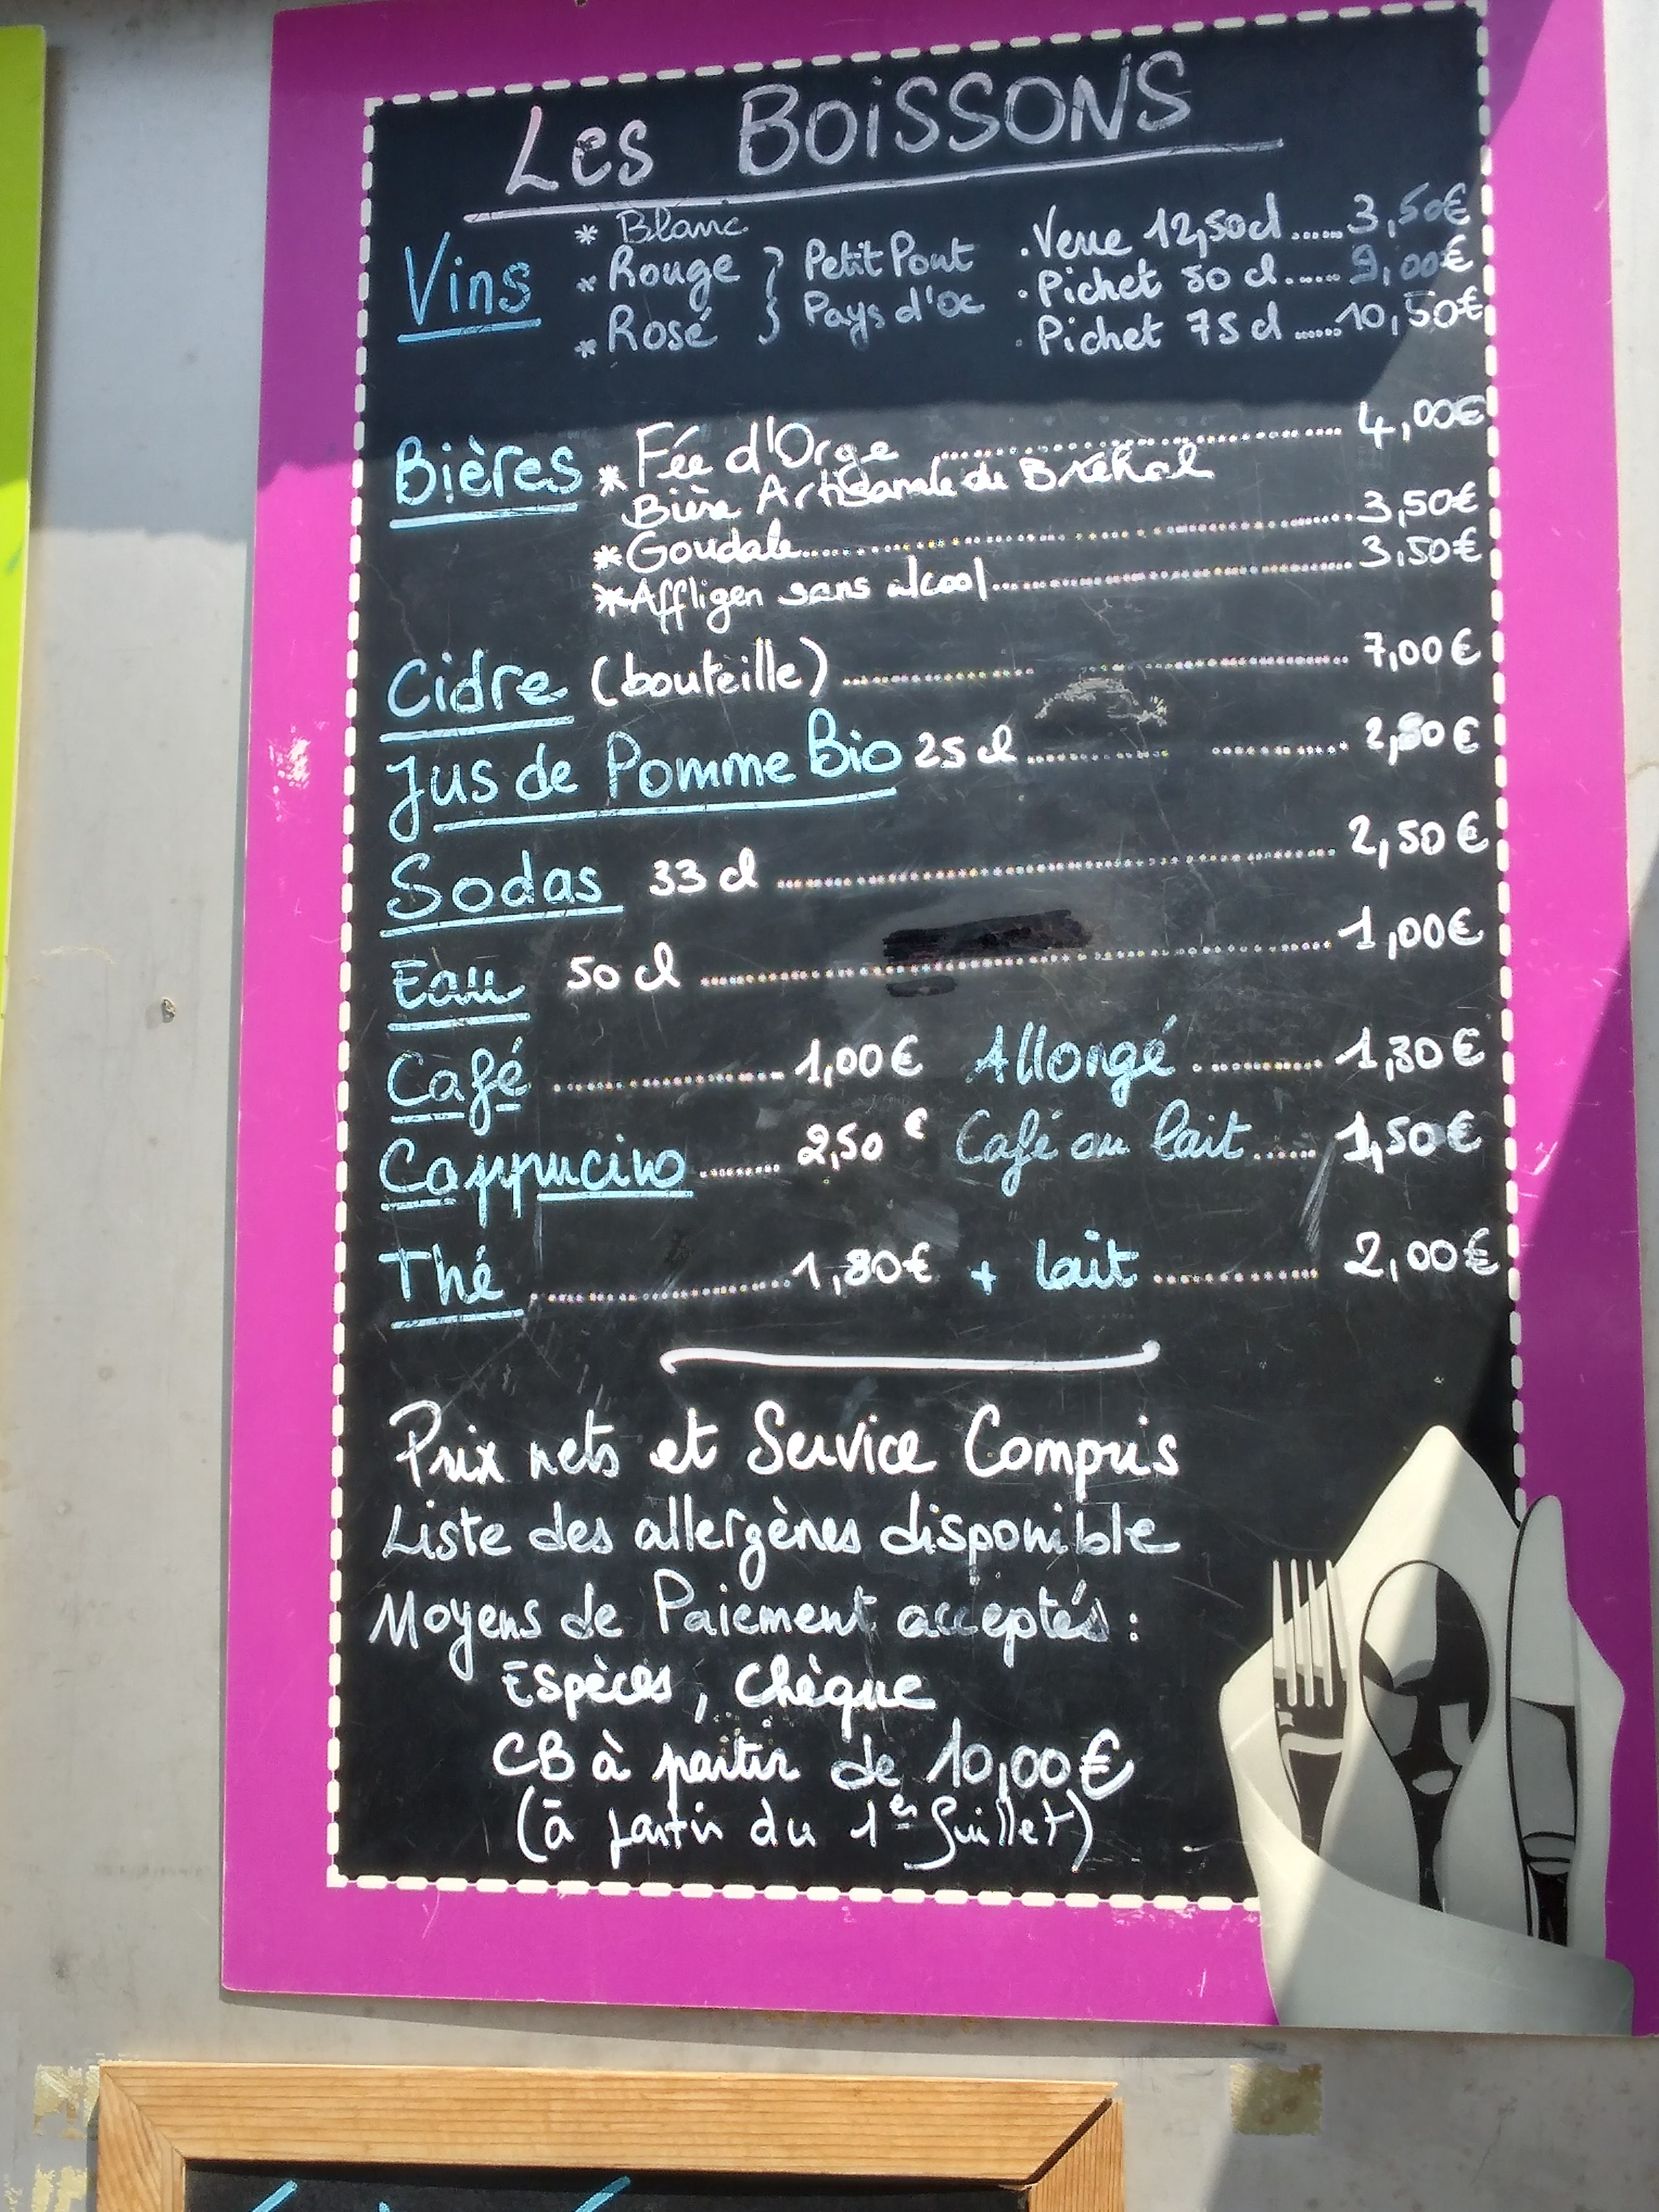 Les BOISSONS
Vins
* Blanc
* Rouge
* Rosé
Petit Pont
Pays d'Oc
. Verre 12,50cl ...... 3,50€
. Pichet 50 cl ...... 9,00€
. Pichet 75 cl ...... 10,50€
Bières * Fée d'Orge ...... 4,00€
Bière Artisanale de Bréhal
* Goudale ...... 3,50€
* Affligen sans alcool ...... 3,50€
Cidre (bouteille) ...... 7,00€
Jus de Pomme Bio 25 cl ...... 2,80€
Sodas 33 cl ...... 2,50€
Eau 50 cl ...... 1,00€
Café ...... 1,00€ Allongé ...... 1,30€
Cappucino ...... 2,50€ Café au lait ...... 1,50€
Thé ...... 1,80€ + lait ...... 2,00€
Prix nets et Service Compris
Liste des allergènes disponible
Moyens de Paiement acceptés :
Espèces, Chèque
CB à partir de 10,00€
(à partir du 1er Juillet)